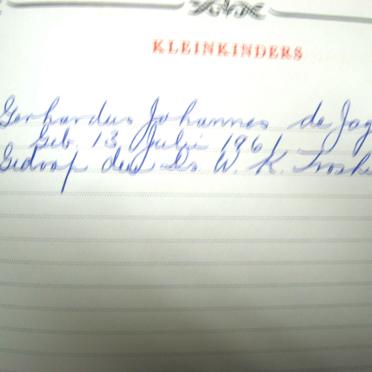 KLEINKINDERS
Gerhardus Johannes de Jag
Geb. 13 Julie 1961
Gedoop deur Ds W. K.